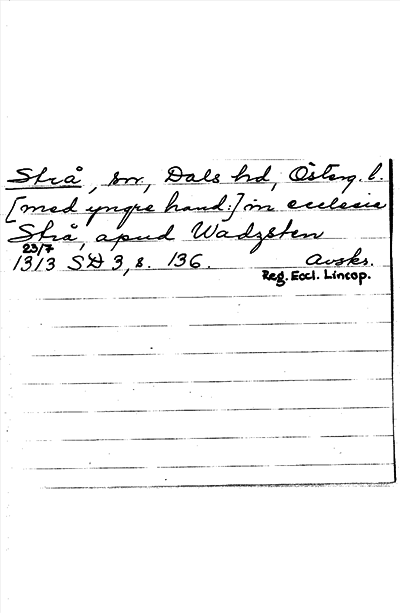 Strå, sn, Dals hd, Österg. l.
[med yngre hand:] in ecclesia
Strå, apud Wadzsten
23/7
1313 SD 3, s. 136. Avskr.
Reg. Eccl. Lincop.